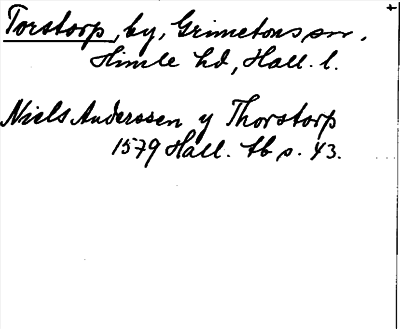 Torstorp, by, Grimetons sn.,
Himle hd, Hall. l.
Niels Anderssen y Thorstorp
1579 Hall. tb s. 43.